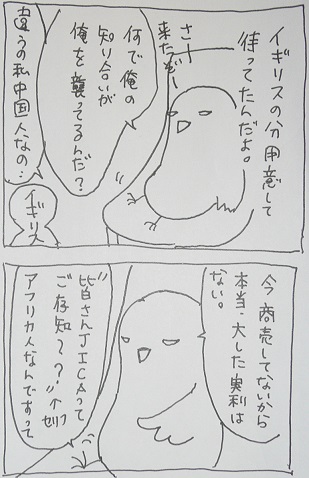 イギリスの分用意して
待ってたんだよ。
さー
来たぞー
何で俺の
知り合いが
俺を襲ってるんだ？
違うの私中国人なの…
イギリス
今商売してないから
本当、大した実利は
ない。
皆さんJICAって
ご存知〜？"
アフリカ人なんですって